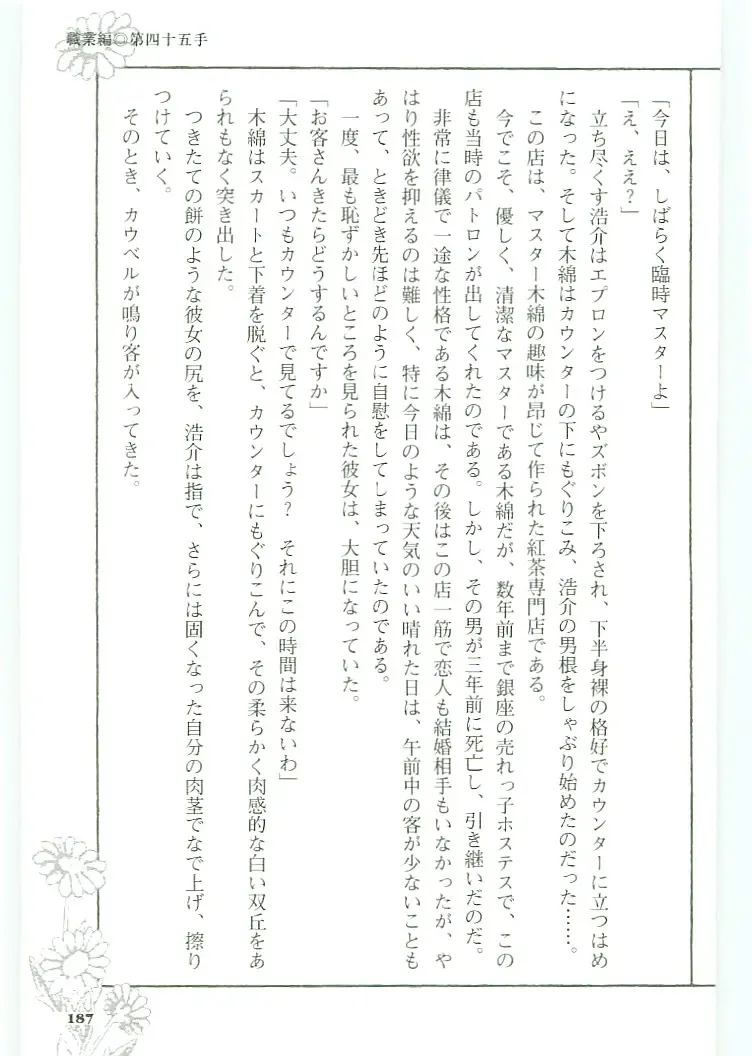 職業編◎第四十五手
「今日は、しばらく臨時マスターよ」
「え、ええ？」
立ち尽くす浩介はエプロンをつけるやズボンを下ろされ、下半身裸の格好でカウンターに立つはめ
になった。そして木綿はカウンターの下にもぐりこみ、浩介の男根をしゃぶり始めたのだった……。
この店は、マスター木綿の趣味が昂じて作られた紅茶専門店である。
今でこそ、優しく、清潔なマスターである木綿だが、数年前まで銀座の売れっ子ホステスで、この
店も当時のパトロンが出してくれたのである。しかし、その男が三年前に死亡し、引き継いだのだ。
非常に律儀で一途な性格である木綿は、その後はこの店一筋で恋人も結婚相手もいなかったが、や
はり性欲を抑えるのは難しく、特に今日のような天気のいい晴れた日は、午前中の客が少ないことも
あって、ときどき先ほどのように自慰をしてしまっていたのである。
一度、最も恥ずかしいところを見られた彼女は、大胆になっていた。
「お客さんきたらどうするんですか」
「大丈夫。いつもカウンターで見てるでしょう？　それにこの時間は来ないわ」
木綿はスカートと下着を脱ぐと、カウンターにもぐりこんで、その柔らかく肉感的な白い双丘をあ
られもなく突き出した。
つきたての餅のような彼女の尻を、浩介は指で、さらには固くなった自分の肉茎でなで上げ、擦り
つけていく。
そのとき、カウベルが鳴り客が入ってきた。
187